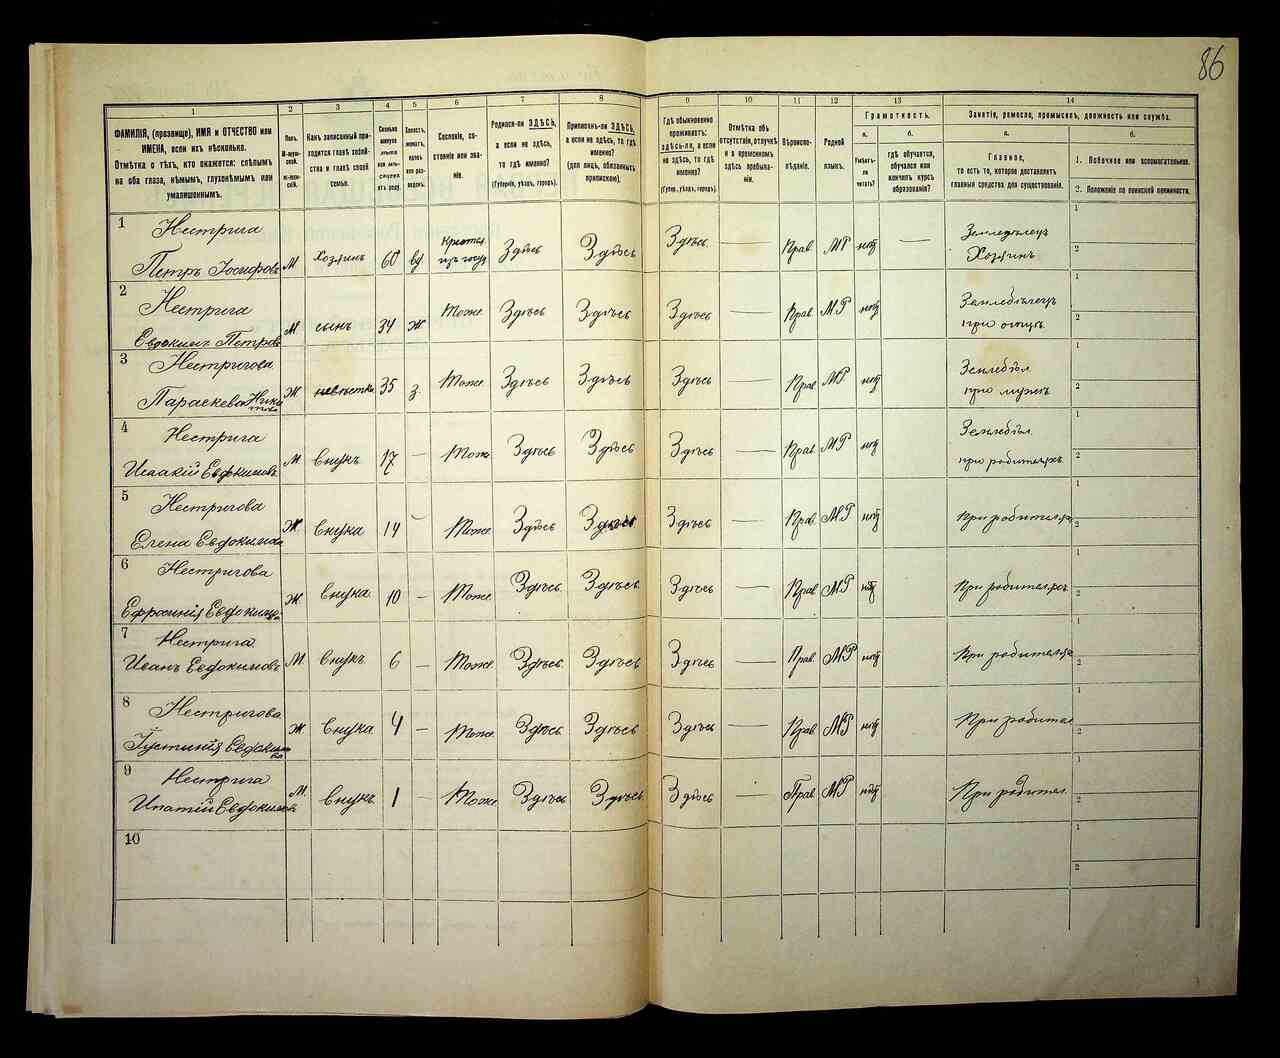 86
1
2
3
4
5
6
7
8
9
10
11
12
13
14
ФАМИЛІЯ, (прозвище), ИМЯ и ОТЧЕСТВО или
ИМЕНА, если ихъ нѣсколько.
Отмѣтка о тѣхъ, кто окажется: слѣпымъ
на оба глаза, нѣмымъ, глухонѣмымъ или
умалишеннымъ.
Полъ.
М-мужской.
Ж-женскій.
Какъ записанный при-
ходится главѣ хозяй-
ства и главѣ своей
семьи.
Сколько
минуло
лѣтъ
или мѣ-
сяцевъ
отъ роду.
Холостъ,
женатъ,
вдовъ
или раз-
веденъ.
Сословіе, со-
стояніе или зва-
ніе.
Родился-ли ЗДѢСЬ,
а если не здѣсь,
то гдѣ именно?
(Губернія, уѣздъ, городъ).
Приписанъ-ли ЗДѢСЬ,
а если не здѣсь, то гдѣ
именно?
(для лицъ, обязанныхъ
припискою).
Гдѣ обыкновенно
проживаетъ:
здѣсь-ли, а если
не здѣсь, то гдѣ
именно?
(Губерн., уѣздъ, городъ).
Отмѣтка объ
отсутствіи, отлучкѣ
и о временномъ
здѣсь пребыва-
ніи.
Вѣроиспо-
вѣданіе.
Родной
языкъ.
Грамотность.
а.
Умѣетъ-
ли
читать?
б.
гдѣ обучается,
обучался или
кончилъ курсъ
образованія?
Занятіе, ремесло, промыселъ, должность или служба.
а.
Главное,
то есть то, которое доставляетъ
главныя средства для существованія.
б.
1. Побочное или вспомогательное.
2. Положеніе по воинской повинности.
1 Нестрига
Петръ Іосифовъ М. Хозяинъ 60 вд Крестья. изъ госуд. Здѣсь Здѣсь Здѣсь — Прав МР нѣтъ — Земледѣлецъ Хозяинъ 1 2
2 Нестрига
Евдокимъ Петровъ М. сынъ 34 Ж Тоже Здѣсь Здѣсь Здѣсь — Прав. М.Р нѣтъ Земледѣлецъ при отцѣ 1 2
3 Нестригова
Параскева Никитова Ж невѣстка 35 з. Тоже Здѣсь Здѣсь Здѣсь — Прав МР нѣтъ Земледѣл при мужѣ 1 2
4 Нестрига
Исаакій Евдокимовъ М. Внукъ 17 — Тоже Здѣсь Здѣсь Здѣсь — Прав МР нѣтъ Земледѣл. при родителяхъ 1 2
5 Нестригова
Елена Евдокимова Ж Внучка 14 — Тоже Здѣсь Здѣсь Здѣсь — Прав. МР нѣтъ При родителях 1 2
6 Нестригова
Ефросинія Евдокимова Ж. Внучка 10 — Тоже Здѣсь Здѣсь Здѣсь — Прав МР нѣтъ При родителях 1 2
7 Нестрига
Иванъ Евдокимовъ М. Внукъ 6 — Тоже Здѣсь Здѣсь Здѣсь — Прав МР нѣтъ При родителях 1 2
8 Нестригова
Іустинія Евдокимова Ж Внучка 4 — Тоже Здѣсь Здѣсь Здѣсь — Прав МР нѣтъ При родител 1 2
9 Нестрига
Ипатій Евдокимовъ М. Внукъ 1 — Тоже Здѣсь Здѣсь Здѣсь — Прав МР нѣтъ При родител. 1 2
10 1 2